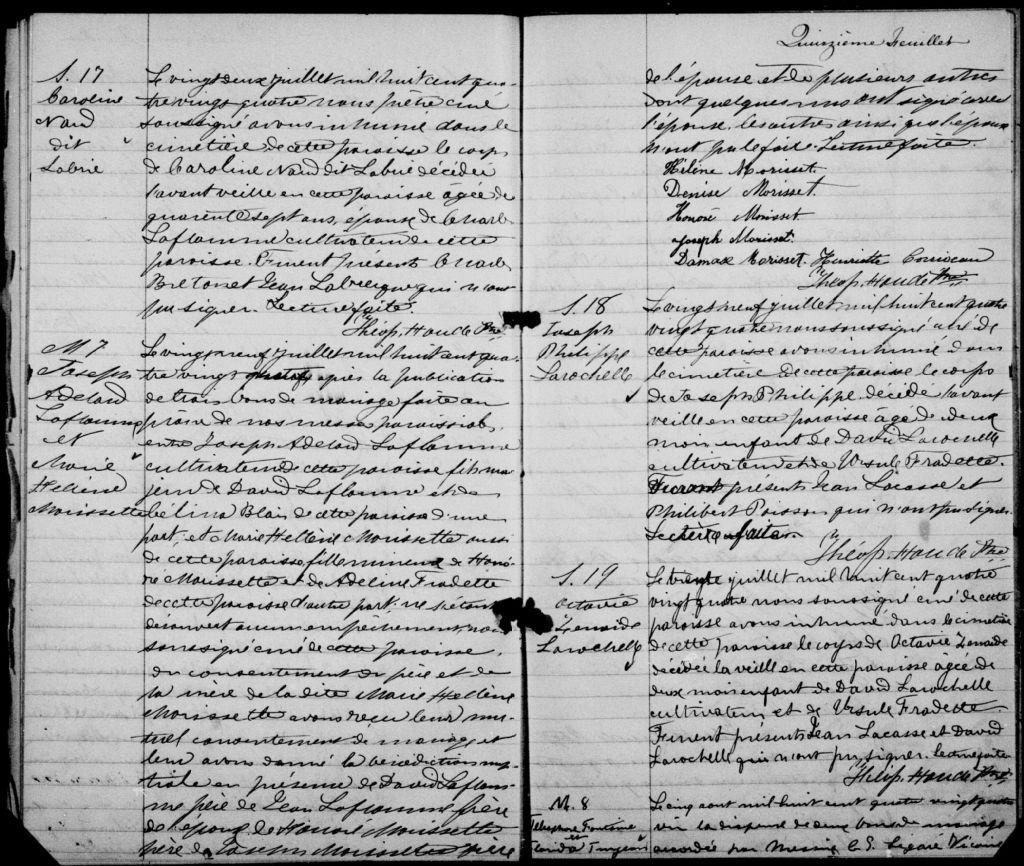 S. 17
Caroline
Nard
dit
Labrie
Le vingt deux juillet mil huit cent qua-
tre vingt quatre nous prêtre curé
soussigné avons inhumé dans le
cimetière de cette paroisse le corps
de Caroline Nard dit Labrie décédée
l'avant veille en cette paroisse âgée de
quarente sept ans, épouse de Charles
Laflamme cultivateur de cette
paroisse. Furent présents Charles
Breton et Jean Labrecque qui n'ont
pu signer. Lecture faite.
Théop. Houde Ptre
M 7
Joseph
Adelard
Laflamme
et
Marie
Hellène
Morissette
Le vingt neuf juillet mil huit cent qua-
tre vingt après la publication
de trois bans de mariage faite au
prône de nos messes paroissiales
entre Joseph Adelard Laflamme
cultivateur de cette paroisse fils ma-
jeur de David Laflamme et de
Célina Blais de cette paroisse d'une
part, et Marie Hellène Morissette aussi
de cette paroisse, fille mineure de Hono-
ré Morissette et de Adeline Fradette
de cette paroisse d'autre part, ne s'étant
découvert aucun empêchement, nous
soussigné curé de cette paroisse,
du consentement du père et de
la mère de la dite Marie Hellène
Morissette avons reçu leur mu-
tuel consentement de mariage et
leur avons donné la bénédiction nup-
tiale en présence de David Laflam-
me père de Jean Laflamme frère
de l'époux, de Honoré Morissette
père de Joseph Morissette frère
Quinzième Feuillet
de l'épouse et de plusieurs autres
dont quelques uns ont signé avec
l'épouse, les autres ainsi que l'époux
n'ont pu le faite. Lecture faite.
Hélène Morisset.
Denise Morisset.
Honoré Morisset
Joseph Morisset.
Damase Morisset. Henriette
Théop. Houde Ptre
S. 18
Joseph
Philippe
Larochelle
Le vingt neuf juillet mil huit cent quatre
vingt quatre nous soussigné curé de
cette paroisse avons inhumé dans
le cimetière de cette paroisse le corps
de Joseph Philippe décédé l'avant
veille en cette paroisse âgé de deux
mois enfant de David Larochelle
cultivateur et de Ursule Fradette.
Furent présents Jean Lacasse et
Philibert Poisson qui n'ont pu signer.
Lecture faite.
Théop. Houde Ptre
S. 19
Octavie
Zenaide
Larochelle
Le trente juillet mil huit cent quatre
vingt quatre nous soussigné curé de cette
paroisse avons inhumé dans le cimetière
de cette paroisse le corps de Octavie Zenaide
décédée la veille en cette paroisse âgée de
deux mois enfant de David Larochelle
cultivateur et de Ursule Fradette.
Furent présents Jean Lacasse et David
Larochelle qui n'ont pu signer. Lecture faite
Théop. Houde Ptre
M. 8
Télesphore Fontaine
et
Le cinq aout mil huit cent quatre vingt quatre
vu la dispense de deux bans de mariage
accordée par Messire C. E. Légaré Vicaire